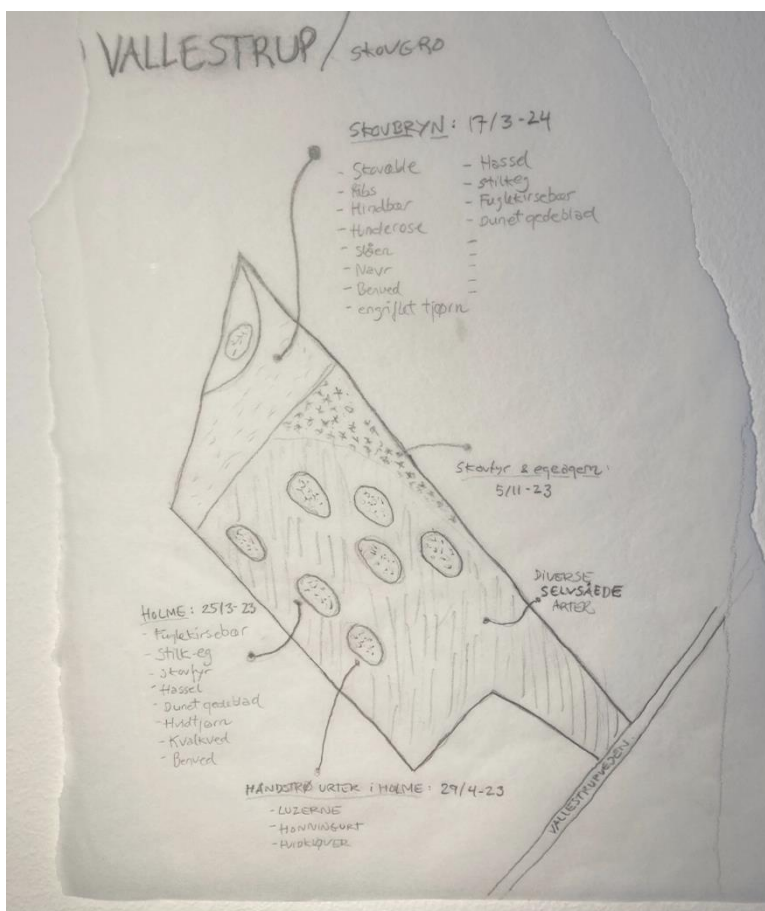 VALLESTRUP / SKOVGRO
SKOVBRYN: 17/3-24
- Skovæble
- Ribs
- Hindbær
- Hunderose
- Slåen
- Navr
- Benved
- engriflet tjørn
- Hassel
- stilkeg
- Fuglekirsebær
- Dunet gedeblad
-
-
-
Skovfyr & egeagern:
5/11-23
DIVERSE
SELVSÅEDE
ARTER
HOLME: 25/3-23
- Fuglekirsebær
- Stilk-eg
- Skovfyr
- Hassel
- Dunet gedeblad
- Hvidtjørn
- Kvalkved
- Benved
HÅNDSTRØ URTER i HOLME: 29/4-23
- LUZERNE
- HONNINGURT
- HVIDKLØVER
VALLESTRUPVEJEN